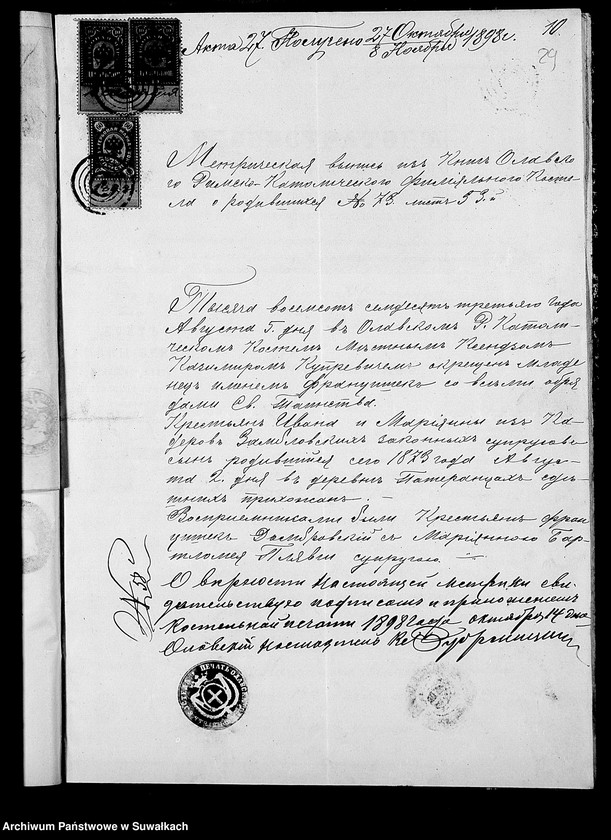 Акта 27 Получено 27 Октября / 8 Ноября 1898 г.
10.
29
Метрическая выпись изъ Книгъ Олавска-
го Римско-Католическаго Филіяльнаго Косте-
ла о родившихся № 73. листъ 53.й
Тысяча восемсотъ семдесятъ третьяго года
Августа 5. дня въ Олавскомъ Р. Католи-
ческомъ Костелѣ Мѣстнымъ Ксендзомъ
Казимиромъ окрещенъ младе
нецъ именемъ Францишекъ со всѣми обря
дами Св. Таинства.
Крестьянъ Ивана и Маріянны изъ Ка-
деровъ законныхъ супруговъ
сынъ родившійся сего 1873 года Авгус-
та 2. дня въ деревнѣ
прихожанъ. —
Воспріемниками были Крестьянъ Фран
цишекъ Домбровскій съ Маріянною Бар-
тломея супругою. —
О вѣрности настоящей Метрики сви-
дѣтельствую подписомъ и приложеніемъ
Костельной печати 1898 года октября 14 дня
Олавскій Настоятель Кс.
ПЕЧАТЬ
Archiwum Państwowe w Suwałkach